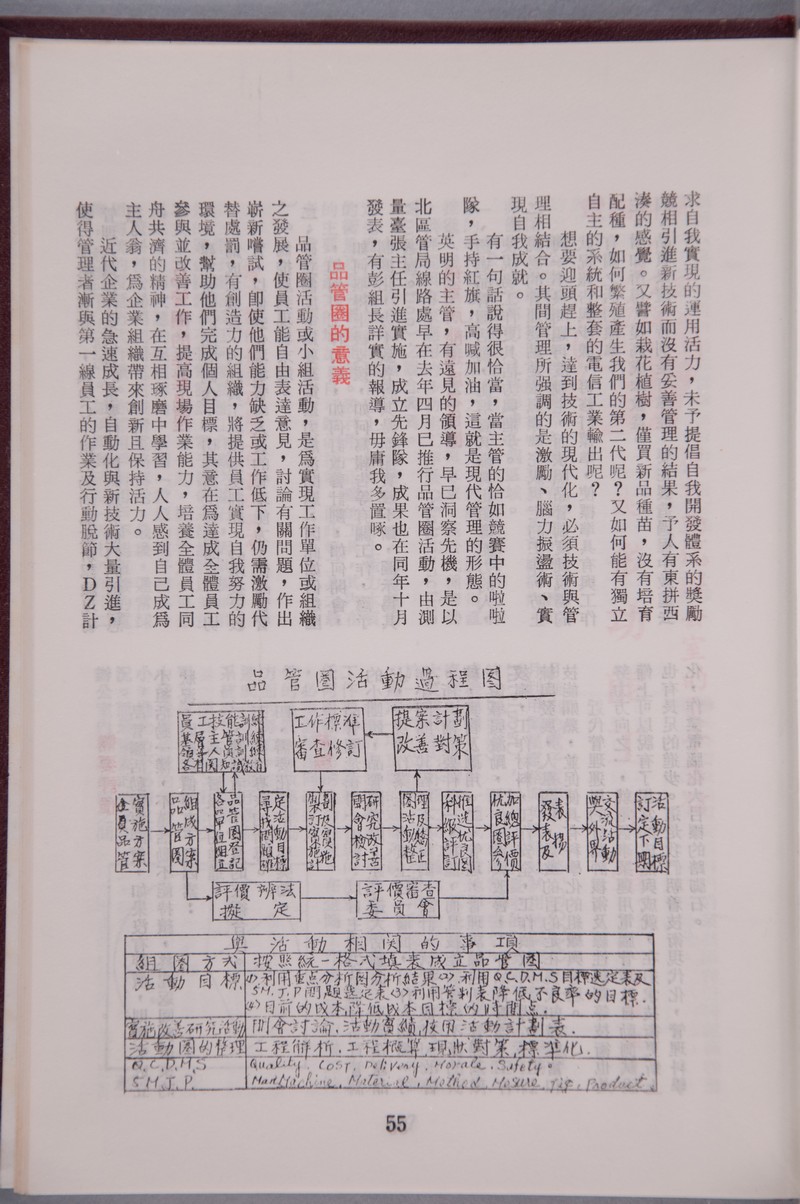 求自我實現的運用活力，未予提倡自我開發體系的獎勵
競相引進新技術而沒有妥善管理的結果，予人有東拼西
湊的感覺。又譬如栽花植樹，僅買新品種苗，沒有培育
配種，如何繁殖產生我們的第二代呢？又如何能有獨立
自主的系統和整套的電信工業輸出呢？
想要迎頭趕上，達到技術的現代化，必須技術與管
理相結合。其間管理所强調的是激勵、腦力振盪術、實
現自我成就。
有一句話說得很恰當，當主管的恰如競賽中的啦啦
隊，手持紅旗，高喊加油，這就是現代管理的形態。
英明的主管，有遠見的領導，早已洞察先機，是以
北區管局線路處早在去年四月已推行品管圈活動，由測
量臺張主任引進實施，成立先鋒隊，成果也在同年十月
發表，有彭組長詳實的報導，毋庸我多置啄。
品管圈的意義
品管圈活動或小組活動，是爲實現工作單位或組織
之發展，使員工能自由表達意見，討論有關問題，作出
嶄新嚐試，卽使他們能力缺乏或工作低下，仍需激勵代
替處罰，有創造力的組織，將提供員工實現自我努力的
環境，幫助他們完成個人目標，其意在爲達成全體員工
參與並改善工作，提高現場作業能力，培養全體員工同
舟共濟的精神，在互相琢磨中學習，人人感到自己成爲
主人翁，爲企業組織帶來創新且保持活力。
近代企業的急速成長，自動化與新技術大量引進，
使得管理者漸與第一線員工的作業及行動脫節，DZ計
品管圈活動過程图
工作標准
審查修訂
提案計劃
改善對策
實施方案
全員品管
組成方案
品管圈
品管圈登記
定活動目標
研究改善
開會檢討
加總評價
優良圈会
表揚
發表及
交流活動
與外界
活動目標
訂定下期
評價辨法
擬定
評價審查
委員會
與活動相関的事項
組圈方式 按照統一格式填表成立品管圈
活動目標 (1)利用重点分析図分析結果(2)利用Q.C.D.M.S目標選定表及
5M.J.P問題選定表(3)利用管制表降低不良率的目標.
(4)目前的成本,降低成本目標的時間点.
實施改善研究活動 開會討論,活動實績,使用活動計劃表.
活動圈的整理 工程解析.工程概算現狀對策,標準化.
Q.C.D.M.S Quality. Cost. Delivery. Morale. Safety.
5M.J.P. Man Machine. Material. Method. Mesure. Jig. Product.
55